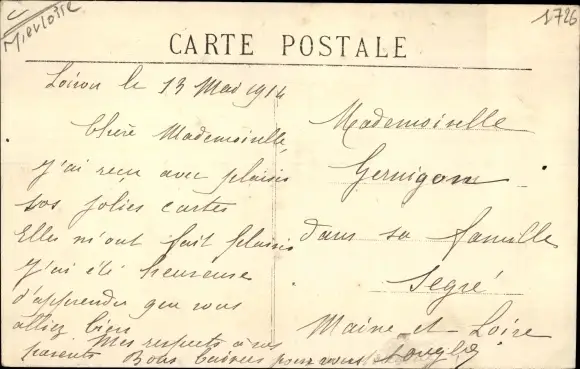 Mierloise
1726
CARTE POSTALE
Loiron le 13 Mai 1914
Chère Mademoiselle,
J'ai reçu avec plaisir
vos jolies cartes
Elles m'ont fait plaisir
J'ai été heureuse
d'apprendre que vous
alliez bien
Mes respects à vos
parents Bons baisers pour vous
Mademoiselle
Gernigon
dans sa famille
Segré
Maine-et-Loire